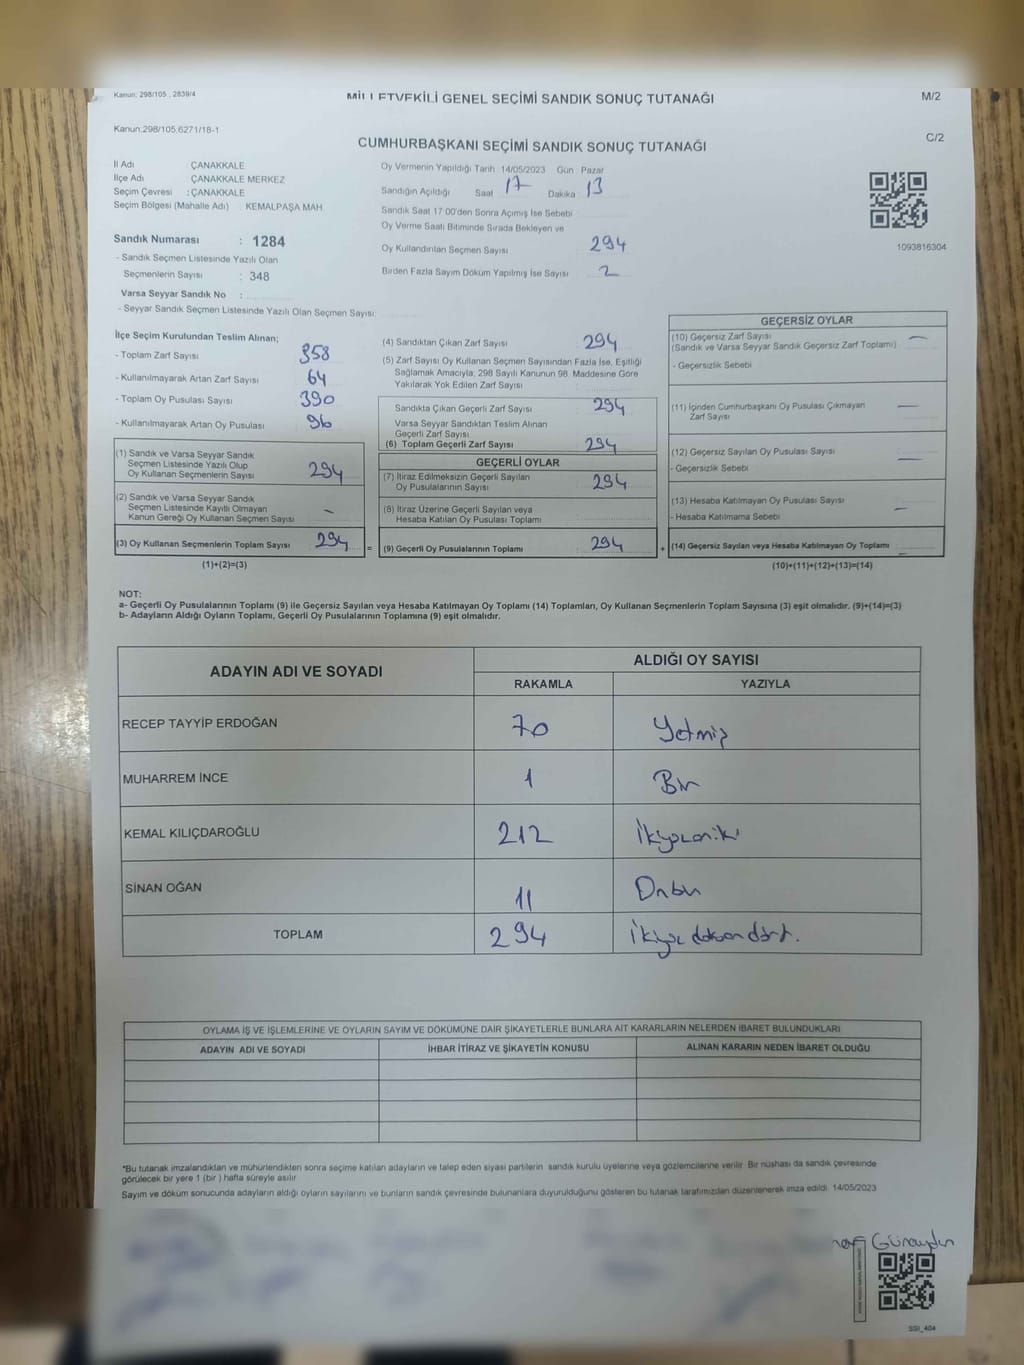 Kanun: 298/105 , 2839/4
MİLLETVEKİLİ GENEL SEÇİMİ SANDIK SONUÇ TUTANAĞI
M/2
Kanun:298/105,6271/18-1
CUMHURBAŞKANI SEÇİMİ SANDIK SONUÇ TUTANAĞI
C/2
İl Adı : ÇANAKKALE
İlçe Adı : ÇANAKKALE MERKEZ
Seçim Çevresi : ÇANAKKALE
Seçim Bölgesi (Mahalle Adı) : KEMALPAŞA MAH.
Sandık Numarası : 1284
- Sandık Seçmen Listesinde Yazılı Olan
Seçmenlerin Sayısı : 348
Varsa Seyyar Sandık No :
- Seyyar Sandık Seçmen Listesinde Yazılı Olan Seçmen Sayısı:
Oy Vermenin Yapıldığı Tarih 14/05/2023 Gün Pazar
Sandığın Açıldığı Saat 17 Dakika 13
Sandık Saat 17 00'den Sonra Açımış İse Sebebi
Oy Verme Saati Bitiminde Sırada Bekleyen ve
Oy Kullandırılan Seçmen Sayısı 294
Birden Fazla Sayım Döküm Yapılmış İse Sayısı 2
1093816304
İlçe Seçim Kurulundan Teslim Alınan;
- Toplam Zarf Sayısı 358
- Kullanılmayarak Artan Zarf Sayısı 64
- Toplam Oy Pusulası Sayısı 390
- Kullanılmayarak Artan Oy Pusulası 96
(1) Sandık ve Varsa Seyyar Sandık
Seçmen Listesinde Yazılı Olup
Oy Kullanan Seçmenlerin Sayısı 294
(2) Sandık ve Varsa Seyyar Sandık
Seçmen Listesinde Kayıtlı Olmayan
Kanun Gereği Oy Kullanan Seçmen Sayısı -
(3) Oy Kullanan Seçmenlerin Toplam Sayısı 294 =
(1)+(2)=(3)
(4) Sandıktan Çıkan Zarf Sayısı 294
(5) Zarf Sayısı Oy Kullanan Seçmen Sayısından Fazla İse, Eşitliği
Sağlamak Amacıyla; 298 Sayılı Kanunun 98. Maddesine Göre
Yakılarak Yok Edilen Zarf Sayısı :
Sandıkta Çıkan Geçerli Zarf Sayısı 294
Varsa Seyyar Sandıktan Teslim Alınan
Geçerli Zarf Sayısı
(6) Toplam Geçerli Zarf Sayısı 294
GEÇERLİ OYLAR
(7) İtiraz Edilmeksizin Geçerli Sayılan
Oy Pusulalarının Sayısı 294
(8) İtiraz Üzerine Geçerli Sayılan veya
Hesaba Katılan Oy Pusulası Toplamı
(9) Geçerli Oy Pusulalarının Toplamı : 294 +
GEÇERSİZ OYLAR
(10) Geçersiz Zarf Sayısı -
(Sandık ve Varsa Seyyar Sandık Geçersiz Zarf Toplamı)
- Geçersizlik Sebebi
(11) İçinden Cumhurbaşkanı Oy Pusulası Çıkmayan -
Zarf Sayısı
(12) Geçersiz Sayılan Oy Pusulası Sayısı -
- Geçersizlik Sebebi
(13) Hesaba Katılmayan Oy Pusulası Sayısı -
- Hesaba Katılmama Sebebi
(14) Geçersiz Sayılan veya Hesaba Katılmayan Oy Toplamı -
(10)+(11)+(12)+(13)=(14)
NOT:
a- Geçerli Oy Pusulalarının Toplamı (9) ile Geçersiz Sayılan veya Hesaba Katılmayan Oy Toplamı (14) Toplamları, Oy Kullanan Seçmenlerin Toplam Sayısına (3) eşit olmalıdır. (9)+(14)=(3)
b- Adayların Aldığı Oyların Toplamı, Geçerli Oy Pusulalarının Toplamına (9) eşit olmalıdır.
ADAYIN ADI VE SOYADI
ALDIĞI OY SAYISI
RAKAMLA YAZIYLA
RECEP TAYYİP ERDOĞAN 70 Yetmiş
MUHARREM İNCE 1 Bir
KEMAL KILIÇDAROĞLU 212 İkiyüzoniki
SİNAN OĞAN 11 Onbir
TOPLAM 294 İkiyüz doksan dört.
OYLAMA İŞ VE İŞLEMLERİNE VE OYLARIN SAYIM VE DÖKÜMÜNE DAİR ŞİKAYETLERLE BUNLARA AİT KARARLARIN NELERDEN İBARET BULUNDUKLARI
ADAYIN ADI VE SOYADI İHBAR İTİRAZ VE ŞİKAYETİN KONUSU ALINAN KARARIN NEDEN İBARET OLDUĞU
*Bu tutanak imzalandıktan ve mühürlendikten sonra seçime katılan adayların ve talep eden siyasi partilerin sandık kurulu üyelerine veya gözlemcilerine verilir. Bir nüshası da sandık çevresinde
görülecek bir yere 1 (bir ) hafta süreyle asılır
Sayım ve döküm sonucunda adayların aldığı oyların sayılarını ve bunların sandık çevresinde bulunanlara duyurulduğunu gösteren bu tutanak tarafımızdan düzenlenerek imza edildi. 14/05/2023
Günaydın
SSI_404